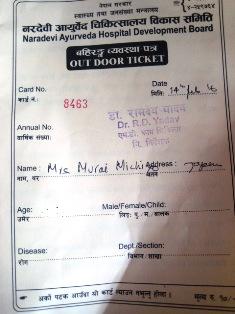 नेपाल सरकार
स्वास्थ्य तथा जनसंख्या मन्त्रालय
नरदेवी आयुर्वेद चिकित्सालय विकास समिति
Naradevi Ayurveda Hospital Development Board
बहिरङ्ग व्यवस्था पत्र
OUT DOOR TICKET
Card No.
कार्ड नं.
8463
Date
मिति:
14th
डा. रामदेव यादव
Dr. R.D. Yadav
Annual No.
वार्षिक संख्या:
Name : Mrs Murai Address :
नाम, थर
Age:
उमेर
Male/Female/Child:
लिङ्ग: पु. म. बालक
Disease:
रोग
Dept./Section:
विभाग / शाखा
अर्को पटक आउँदा यो कार्ड ल्याउन नभुल्नु होला ।